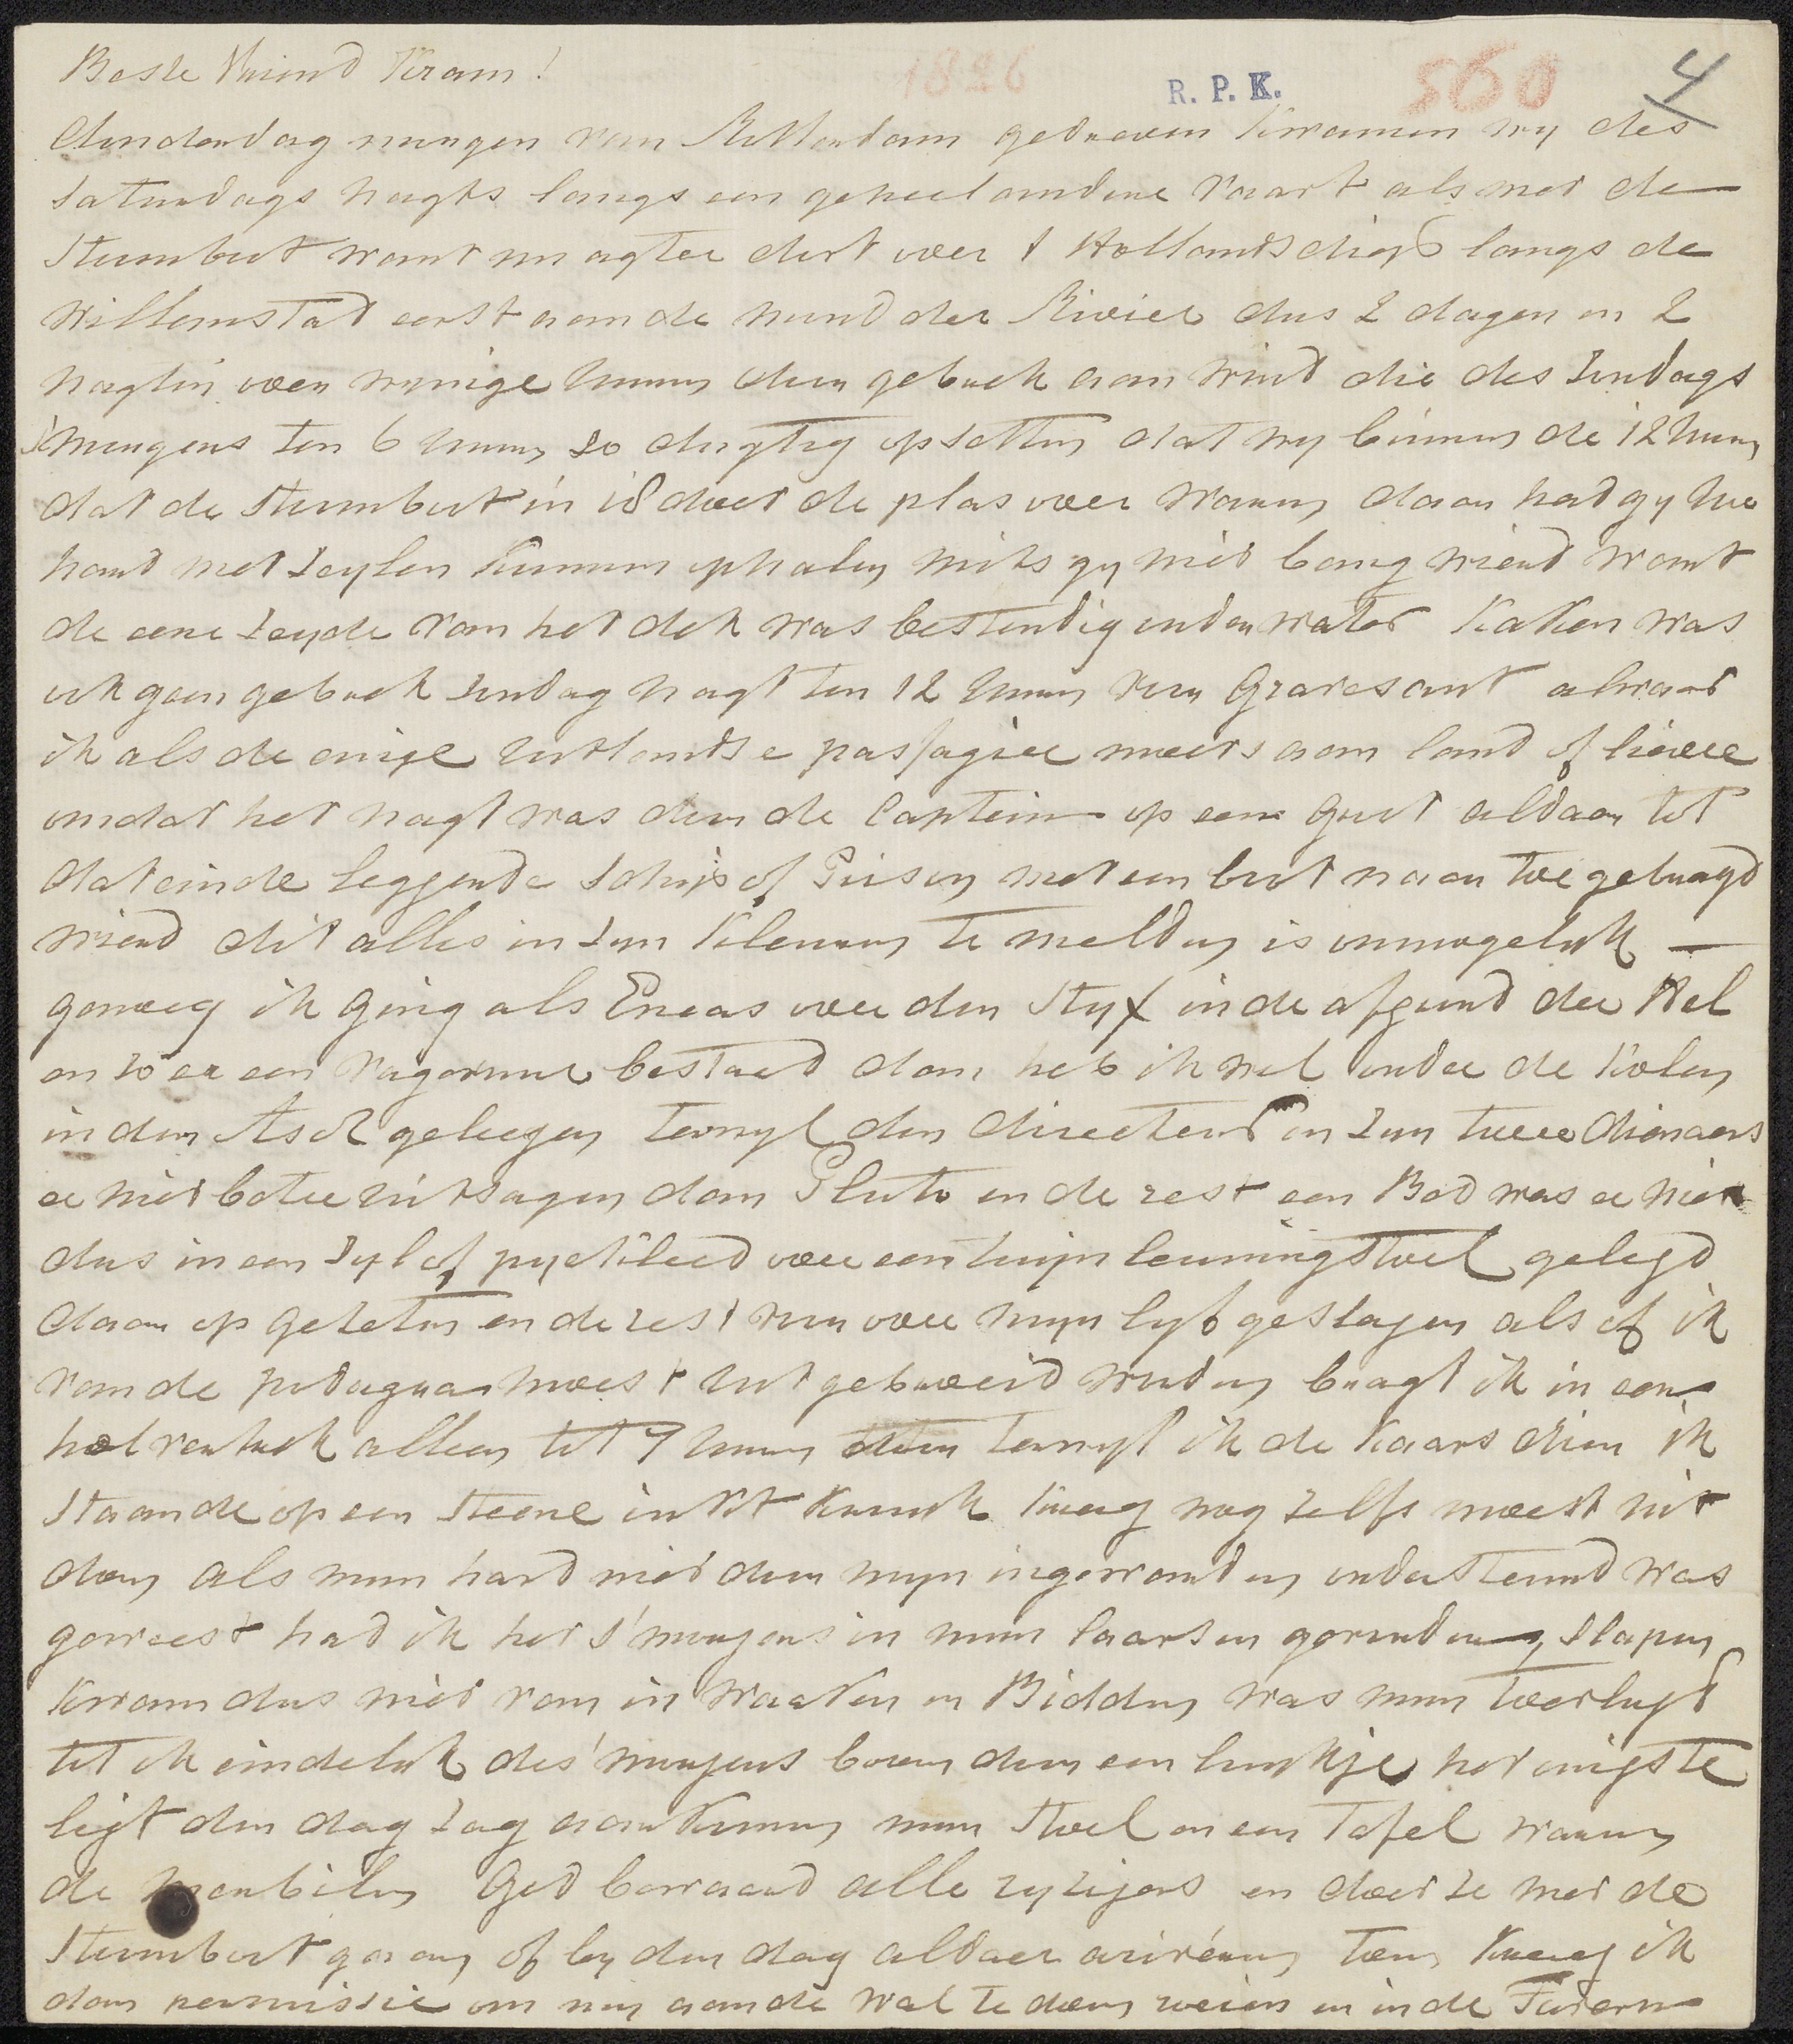 Beste Vriend Kram!
1826
R. P. K.
560
4
donderdag morgen van Rotterdam gedreeven kwamen wy des
saturdags nagts langs een geheel andere vaart als met de
Stoomboot want nu agter dort over t Hollandsdiep langs de
willemstad eerst aan de mond der Rivier dus 2 dagen en 2
nagten over wynige uuren door gebrek aan wind die des sondags
s'morgens ten 6 uuren so dugtig opsetten dat wy binnen de 12 uuren
dat de stoomboot in 18 doet de plas over waren, daar had gy uw
hand met seylen kunnen ophalen mits gy niet bang wierd want
de eene seyde van het dek was bestendig onder water kakken was
ook geen gebrek sondag nagt ten 12 uuren voor Gravesant alwaar
ik als de enige uitlandse passagier moets aan land of liever
omdat het nagt was door de Captein op een groot aldaar tot
dat einde leggende schip of Prison met een boot naar toe gebragt
wierd dit alles in zyn kleuren te melden is onmogelyk —
genoeg ik ging als Eneas over den Styx in de afgrond der Hel
en zo er een vagevuur bestaat dan heb ik wel onder de kolen
in den Asch geleegen terwyl den directeur en zyn twee dienaars
er niet beter uitsagen dan Pluto en de rest een Bed was er niet
dus in een zyl of pyekleed over een leuningstoel gelegd
daar op gezeten en de rest voor over myn lyf geslagen als of ik
van de podagra moest uitgebroeid worden bragt ik in een
hol vertrek alleen tot 7 uuren terwyl ik de kaars dien ik
staande op een steene inkt kruik kreeg nog zelfs moest uit
doen als myn hard niet door myn ingewanden ondersteund was
geweest had ik het s'morgens in myn laarsen gevonden, slapen
kwam dus niet van in waaken en Bidden was myn toevlugt
tot ik eindelyk des'morgens boven door een luikje het enigste
ligt den dag zag aankomen myn stoel en een Tafel waaren
de meubilen God bewaard alle ryzigers en doet ze met de
Stoomboot gaan, of by den dag aldaer ariveeren, toen kreeg ik
dan permissie om my aan de wal te doen roeien en in de Tavern